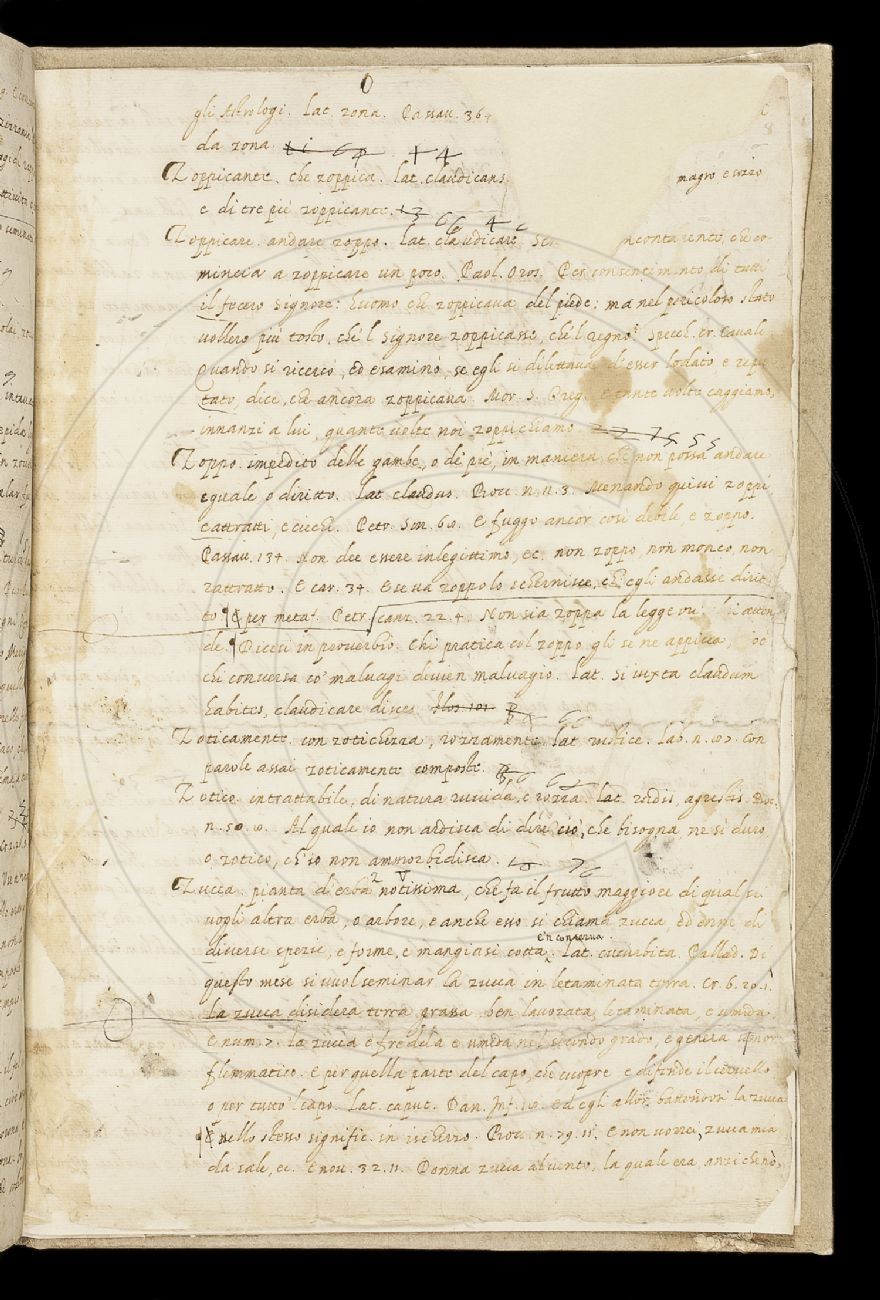 gli Astrologi. Lat. zona. Passau. 364
da zona
Zoppicante. che zoppica. Lat. claudicans magro e
e di tre piè zoppicante.
Zoppicare. andare zoppo. Lat. claudicare incontanente, che co-
mincia a zoppicare un poco. Paol. Oros. Per consentimento di tutti
il fecero Signore: huomo che zoppicava del piede: ma nel pericoloso stato
vollero più tosto, che 'l Signore zoppicasse, che 'l regno. Specch. cr. Cavalc.
Quando si ricerco, ed esaminò, se egli si dilettava d'esser lodato e repu
tato, dice, che ancora zoppicava. Mor. S. Greg. E tante volte caggiamo,
innanzi a lui, quante volte noi zoppichiamo. 22 75 55
Zoppo. impedito delle gambe, o de' piè, in maniera, che non possa andare
eguale o diritto. Lat. claudus. Bocc. n. 11. 3. Menando quivi zoppi,
e attratti, e ciechi. Petr. Son. 60. E fuggo ancor così debile, e zoppo.
Passau. 134. Non dee essere inlegittimo, ec. non zoppo, non monco, non
rattratto. E car. 34. E se va zoppo lo schernisce, ch' egli andasse dirit-
to ¶ E per metaf. Petr. canz. 22. 4. Non sia zoppa la legge
de ¶ Dicesi in proverbio. Chi pratica col zoppo gli se ne appicca,
chi conversa co' malvagi divien malvagio. Lat. Si iuxta claudum
habites, claudicare disces.
Zoticamente. con zotichezza, rozzamente. Lat. rustice. Lab. n. Con
parole assai zoticamente composte.
Zotico. intrattabile, di natura ruvida, e rozza. Lat. rudis, agrestis. Boc.
n. 50. Al quale io non ardisca di dire ciò, che bisogna, ne sì duro
o zotico, ch' io non ammorbidisca. 76
Zucca. pianta d'erba notissima, che fa il frutto maggiore di qual si
vogli altra erba, o arbore, e anche esso si chiama zucca, ed enne di
diverse spezie, e forme, e mangiasi cotta, e 'n conserva. Lat. cucurbita. Pallad. Di
questo mese si vuol seminar la zucca in letaminata terra. Cr. 6. 20. 1.
La zucca disidera terra grassa ben lavorata, letaminata, e umida.
E num. 2. la zucca è fredda e umida nel secondo grado, e genera umor
flemmatico. E per quella parte del capo, che cuopre e difende il cervello
o per tutto 'l capo. Lat. caput. Dan. Inf. Ed egli allor, battendosi la zucca
¶ E nello stesso signific. in ischerzo. Bocc. n. 79. 11. E non vorrei, zucca mia
da sale, ec. E nov. 32. 11. Donna zucca al vento, la quale era, anzi che nò,